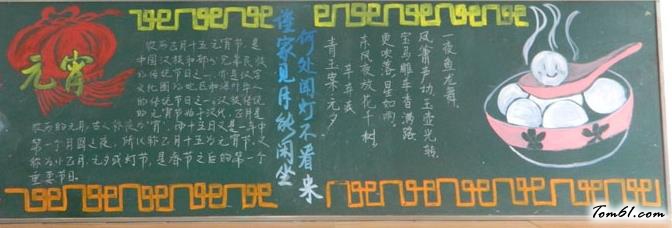 元宵
农历正月十五元宵节,是
中国汉族和部分兄弟民族
的传统节日之一,亦是汉字
文化圈的地区和海外华人
的传统节日之一。汉族传统
的元宵节始于汉代,正月是
农历的元月,古人称夜为"宵",而十五日又是一年中
第一个月圆之夜,所以称正月十五为元宵节。又
称为小正月、元夕或灯节,是春节之后的第一个
重要节日。
谁家见月能闲坐
何处闻灯不看来
青玉案·元夕
辛弃疾
东风夜放花千树,
更吹落,星如雨。
宝马雕车香满路。
凤箫声动,玉壶光转,
一夜鱼龙舞。
Tom61.com